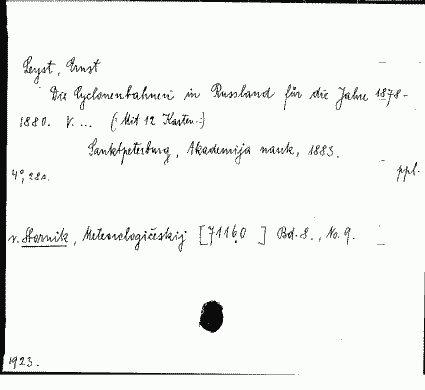 Leyst, Ernst
Die Cyclonenbahnen in Russland für die Jahre 1878-
1880. V. ... (Mit 12 Karten.)
Sanktpeterburg, Akademija nauk, 1883.
4°, 28s. ppl.
v. Sbornik, Meteorologičeskij [71160 ] Bd. 8., No. 9.
1923.